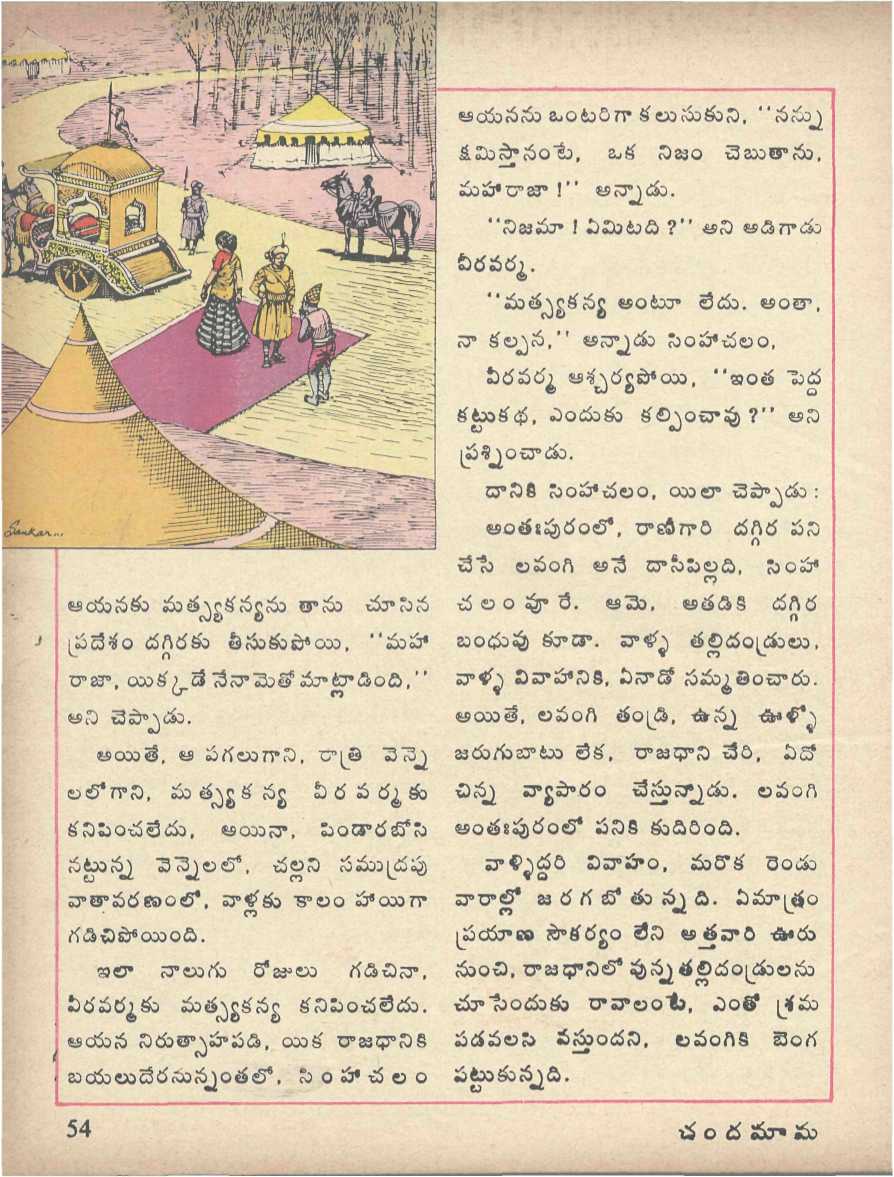 Sankar...
ఆయనకు మత్స్యకన్యను తాను చూసిన
ప్రదేశం దగ్గిరకు తీసుకుపోయి, ‘‘మహా
రాజా, యిక్కడే నేనామెతో మాట్లాడింది,’’
అని చెప్పాడు.
అయితే, ఆ పగలుగాని, రాత్రి వెన్నె
లలోగాని, మత్స్యకన్య వీరవర్మకు
కనిపించలేదు, అయినా, పిండారబోసి
నట్టున్న వెన్నెలలో, చల్లని సముద్రపు
వాతావరణంలో, వాళ్లకు కాలం హాయిగా
గడిచిపోయింది.
ఇలా నాలుగు రోజులు గడిచినా,
వీరవర్మకు మత్స్యకన్య కనిపించలేదు.
ఆయన నిరుత్సాహపడి, యిక రాజధానికి
బయలుదేరనున్నంతలో, సింహాచలం
ఆయనను ఒంటరిగా కలుసుకుని, ‘‘నన్ను
క్షమిస్తానంటే, ఒక నిజం చెబుతాను,
మహారాజా !’’ అన్నాడు.
‘‘నిజమా ! ఏమిటది ?’’ అని అడిగాడు
వీరవర్మ.
‘‘మత్స్యకన్య అంటూ లేదు. అంతా,
నా కల్పన,’’ అన్నాడు సింహాచలం,
వీరవర్మ ఆశ్చర్యపోయి, ‘‘ఇంత పెద్ద
కట్టుకథ, ఎందుకు కల్పించావు ?’’ అని
ప్రశ్నించాడు.
దానికి సింహాచలం, యిలా చెప్పాడు :
అంతఃపురంలో, రాణీగారి దగ్గిర పని
చేసే లవంగి అనే దాసీపిల్లది, సింహా
చలంవూరే. ఆమె, అతడికి దగ్గిర
బంధువు కూడా. వాళ్ళ తల్లిదండ్రులు,
వాళ్ళ వివాహానికి, ఏనాడో సమ్మతించారు.
అయితే, లవంగి తండ్రి, ఉన్న ఊళ్ళో
జరుగుబాటు లేక, రాజధాని చేరి, ఏదో
చిన్న వ్యాపారం చేస్తున్నాడు. లవంగి
అంతఃపురంలో పనికి కుదిరింది.
వాళ్ళిద్దరి వివాహం, మరొక రెండు
వారాల్లో జరగబోతున్నది. ఏమాత్రం
ప్రయాణ సౌకర్యం లేని అత్తవారి ఊరు
నుంచి, రాజధానిలో వున్న తల్లిదండ్రులను
చూసేందుకు రావాలంటే, ఎంతో శ్రమ
పడవలసి వస్తుందని, లవంగికి బెంగ
పట్టుకున్నది.
54
చందమామ